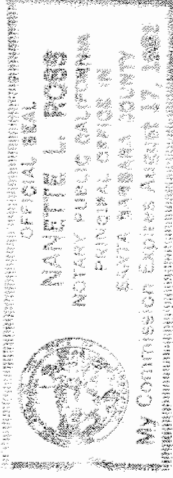 OFFICIAL SEAL
NANETTE L. ROSS
NOTARY PUBLIC CALIFORNIA
PRINCIPAL OFFICE IN
SANTA BARBARA COUNTY
My Commission Expires August